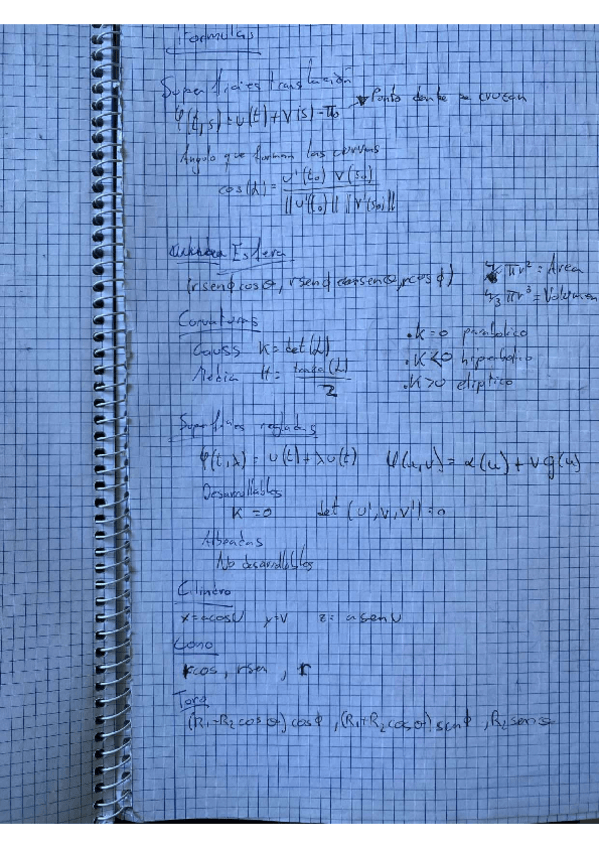 Formulas
Superficies translación
φ(t,s) = u(t) + v(s) - P₀ → Punto donde se cruzan
Angulo que forman las curvas
cos(α) = u'(t₀) v(s₀) / ||u'(t₀)|| ||v'(s₀)||
Esfera
(r senϕ cosθ, r senϕ senθ, r cosϕ)
4πr² = Área
4/3 πr³ = Volumen
Curvaturas
Gauss K = det(L)
Media H = traza(L) / 2
. K = 0 parabolico
. K < 0 hiperbolico
. K > 0 eliptico
Superficies regladas
φ(t,λ) = u(t) + λv(t) φ(u,v) = α(u) + v g(u)
Desarrollables
K = 0 det (u', v, v') = 0
Alabeadas
No desarrollables
Cilindro
x = a cosU y = v z = a senU
Cono
r cos, r sen, r
Toro
(R₁+R₂cosθ) cosϕ, (R₁+R₂cosθ) senϕ, R₂ senθ